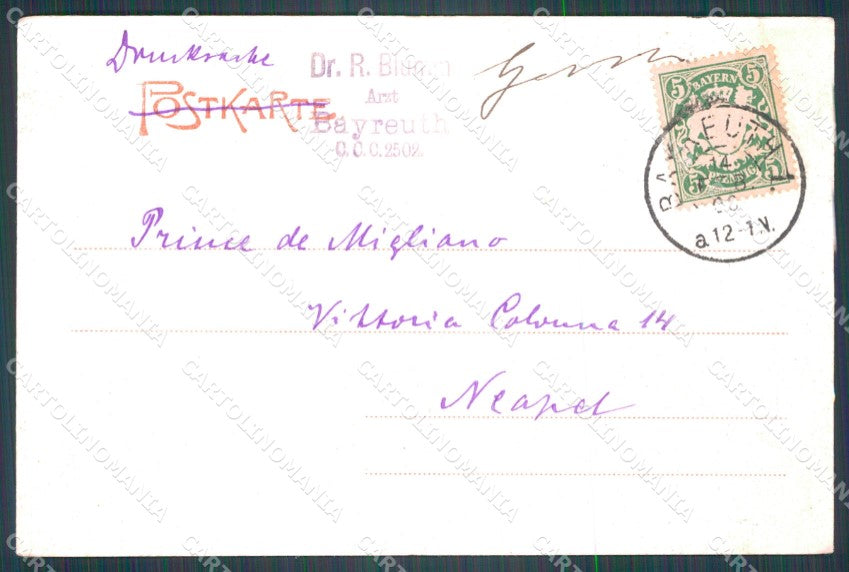 Drucksache
POSTKARTE
Dr. R.
Arzt
Bayreuth
C.C.C. 2502.
5 BAYERN 5
5 PFENNIG 5
BAYREUTH
14
a 12-1 N.
Prince de Migliano
Vittoria Colonna 14
Neapel
CARTOLINOMANIA